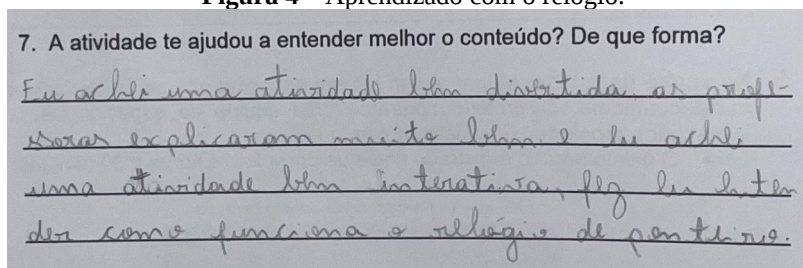 Figura 4 – Aprendizado com o relógio.
7. A atividade te ajudou a entender melhor o conteúdo? De que forma?
Eu achei uma atividade bem divertida, as profe-
ssoras explicaram muito bem e eu achei
uma atividade bem interativa, fez eu enten
der como funciona o relógio de ponteiro.